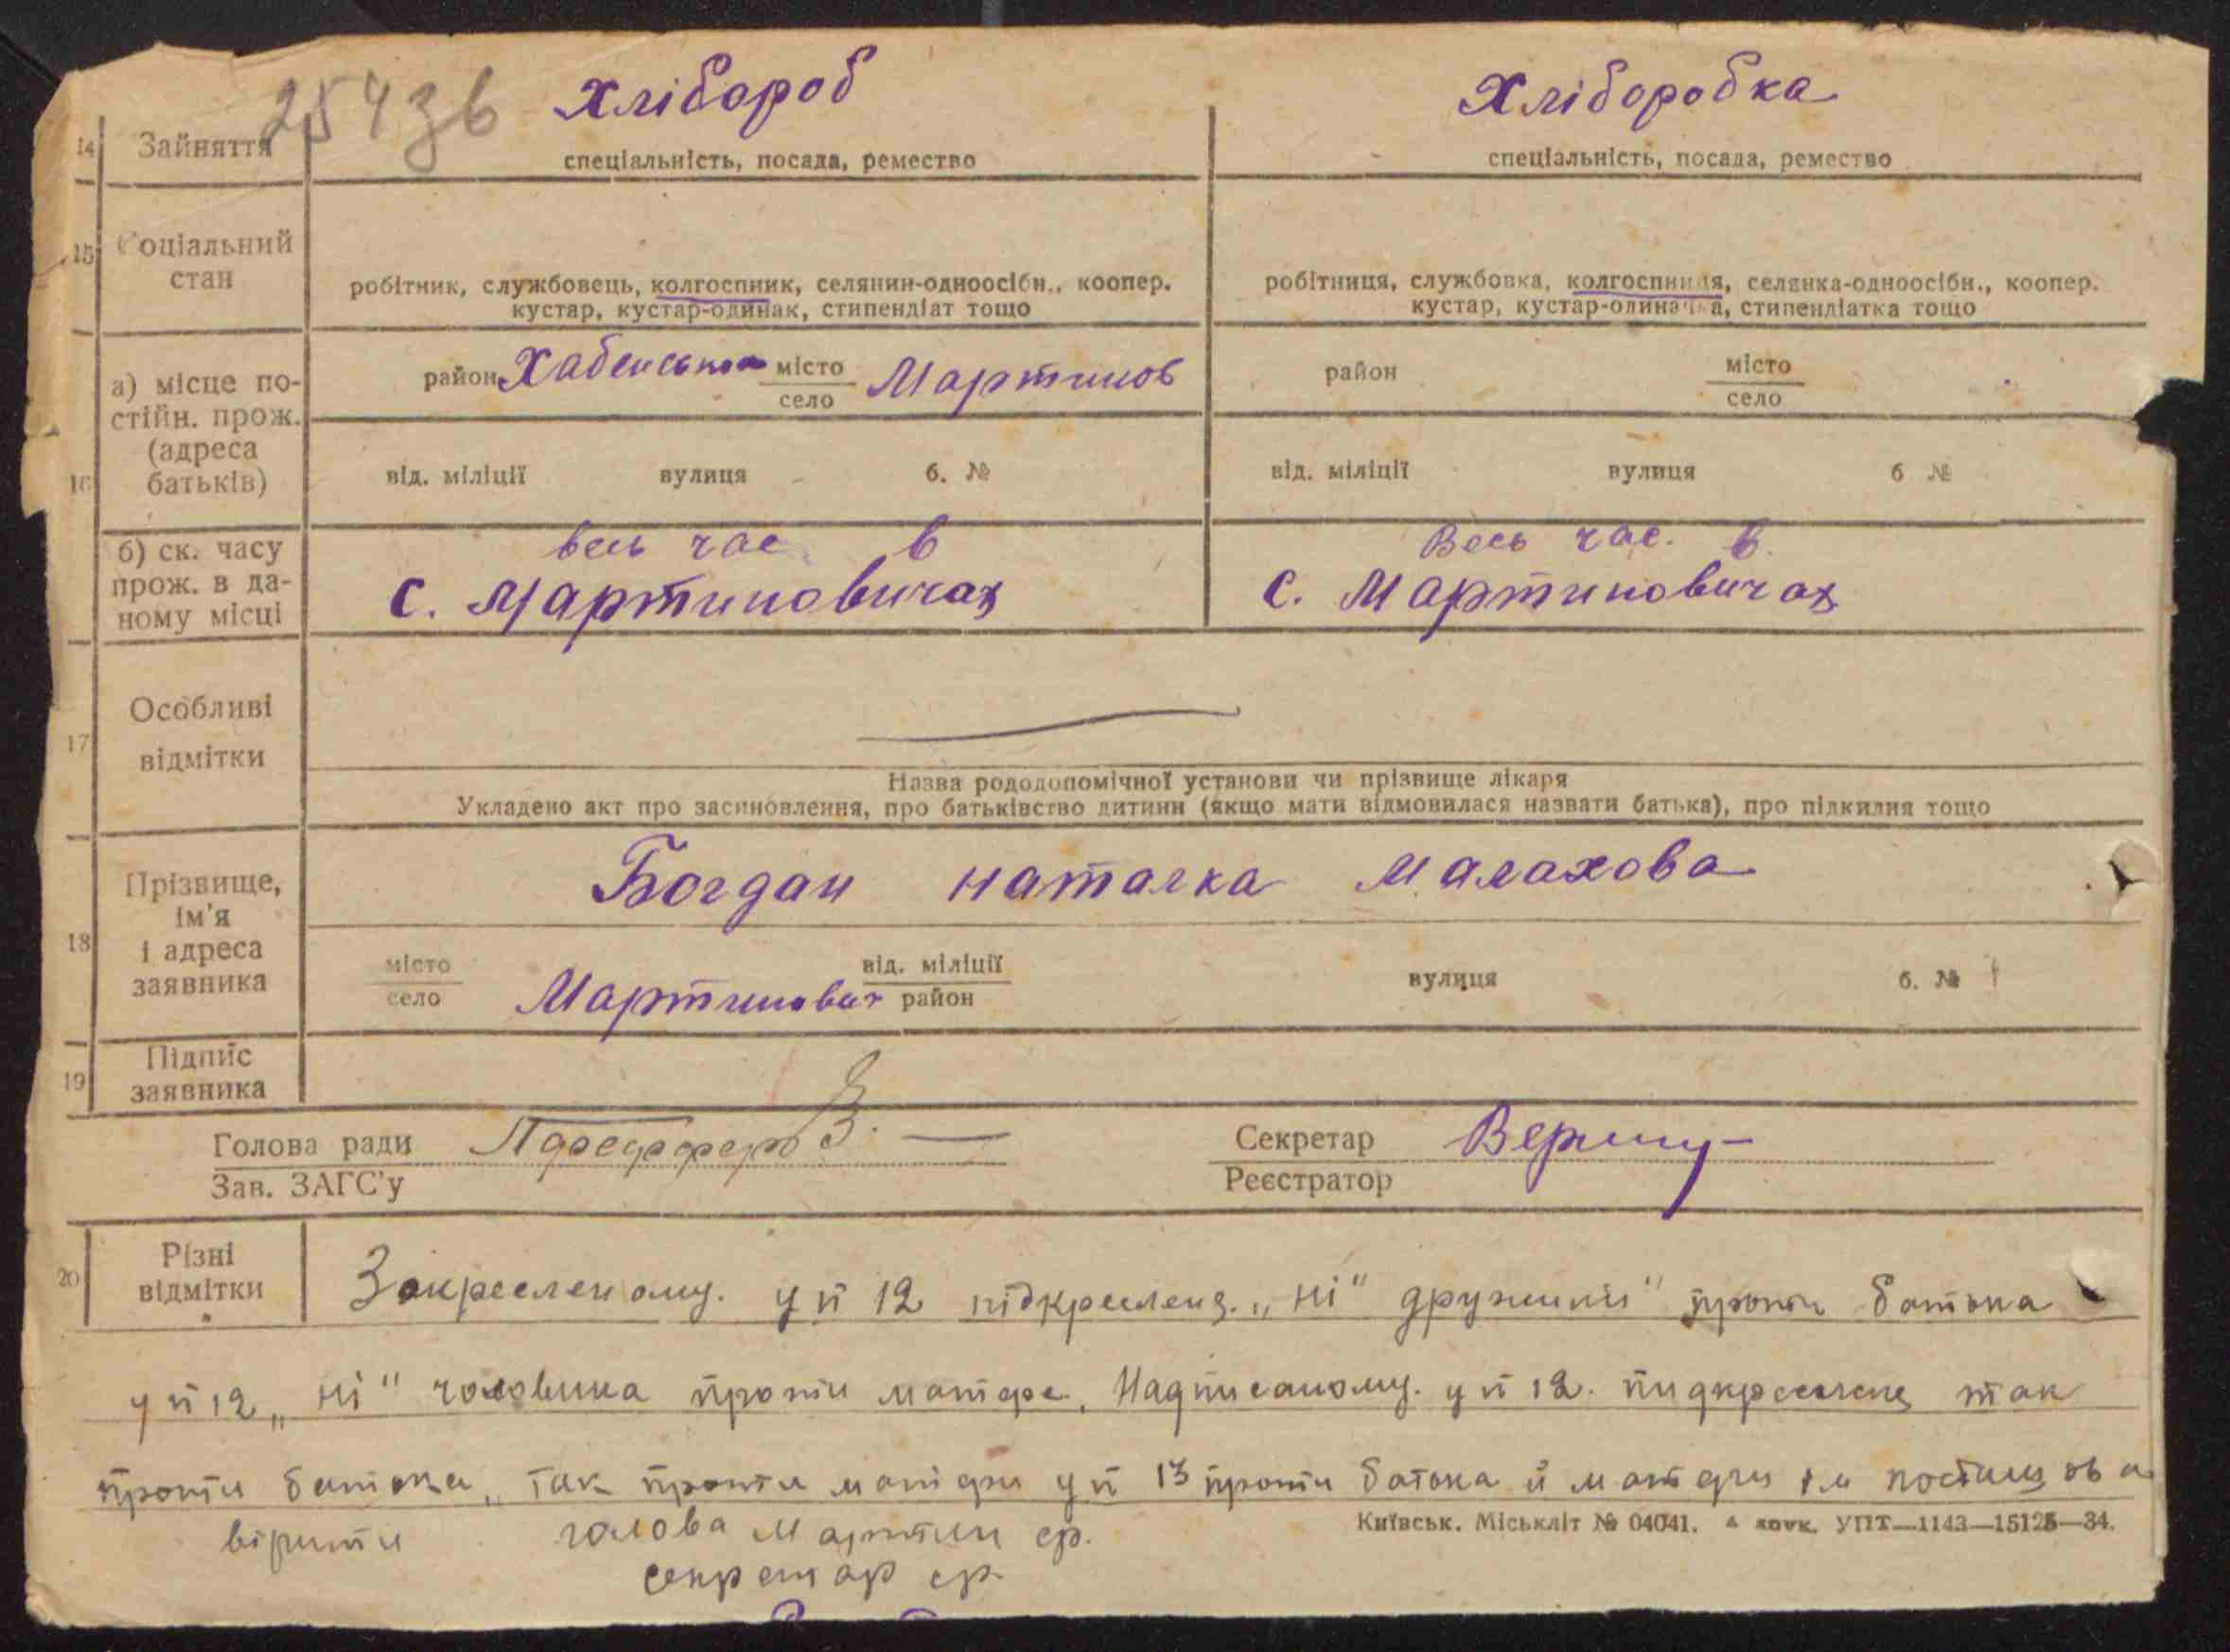 254зв
Хлібороб Хліборобка
14 Зайняття
спеціальність, посада, ремество спеціальність, посада, ремество
15 Соціальний стан
робітник, службовець, колгоспник, селянин-одноосібн., коопер. робітниця, службовка, колгоспниця, селянка-одноосібн., коопер.
кустар, кустар-одинак, стипендіат тощо кустар, кустар-одиначка, стипендіатка тощо
16 а) місце по-
стійн. прож.
(адреса
батьків)
район Хабенськ місто село Мартинов район місто село
від. міліції вулиця б. № від. міліції вулиця б №
б) ск. часу
прож. в да-
ному місці
весь час в Весь час. в.
с. Мартиновичах с. Мартиновичах
17 Особливі
відмітки
Назва рододопомічної установи чи прізвище лікаря
Укладено акт про засиновлення, про батьківство дитини (якщо мати відмовилася назвати батька), про підкидня тощо
18 Прізвище,
ім'я
і адреса
заявника
Богдан Наталка Малахова
місто село Мартинович від. міліції район вулиця б. №
19 Підпис
заявника
Голова ради Секретар
Зав. ЗАГС'у Реєстратор
20 Різні
відмітки
Закресленому. у п 12 підкреслено. „ні" дружини" проти батька
у п 12 „ні" чоловіка проти матере. Надписаному. у п 12. пидкреслене так
проти батька „так проти матери у п 13 проти батька й матери
вірити голова Мартин ср.
Київськ. Міськліт № 04041. УПТ—1143—15125—34.
секретар ср.